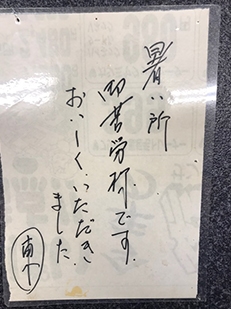 暑い所
御苦労様です。
おいしくいただき
ました